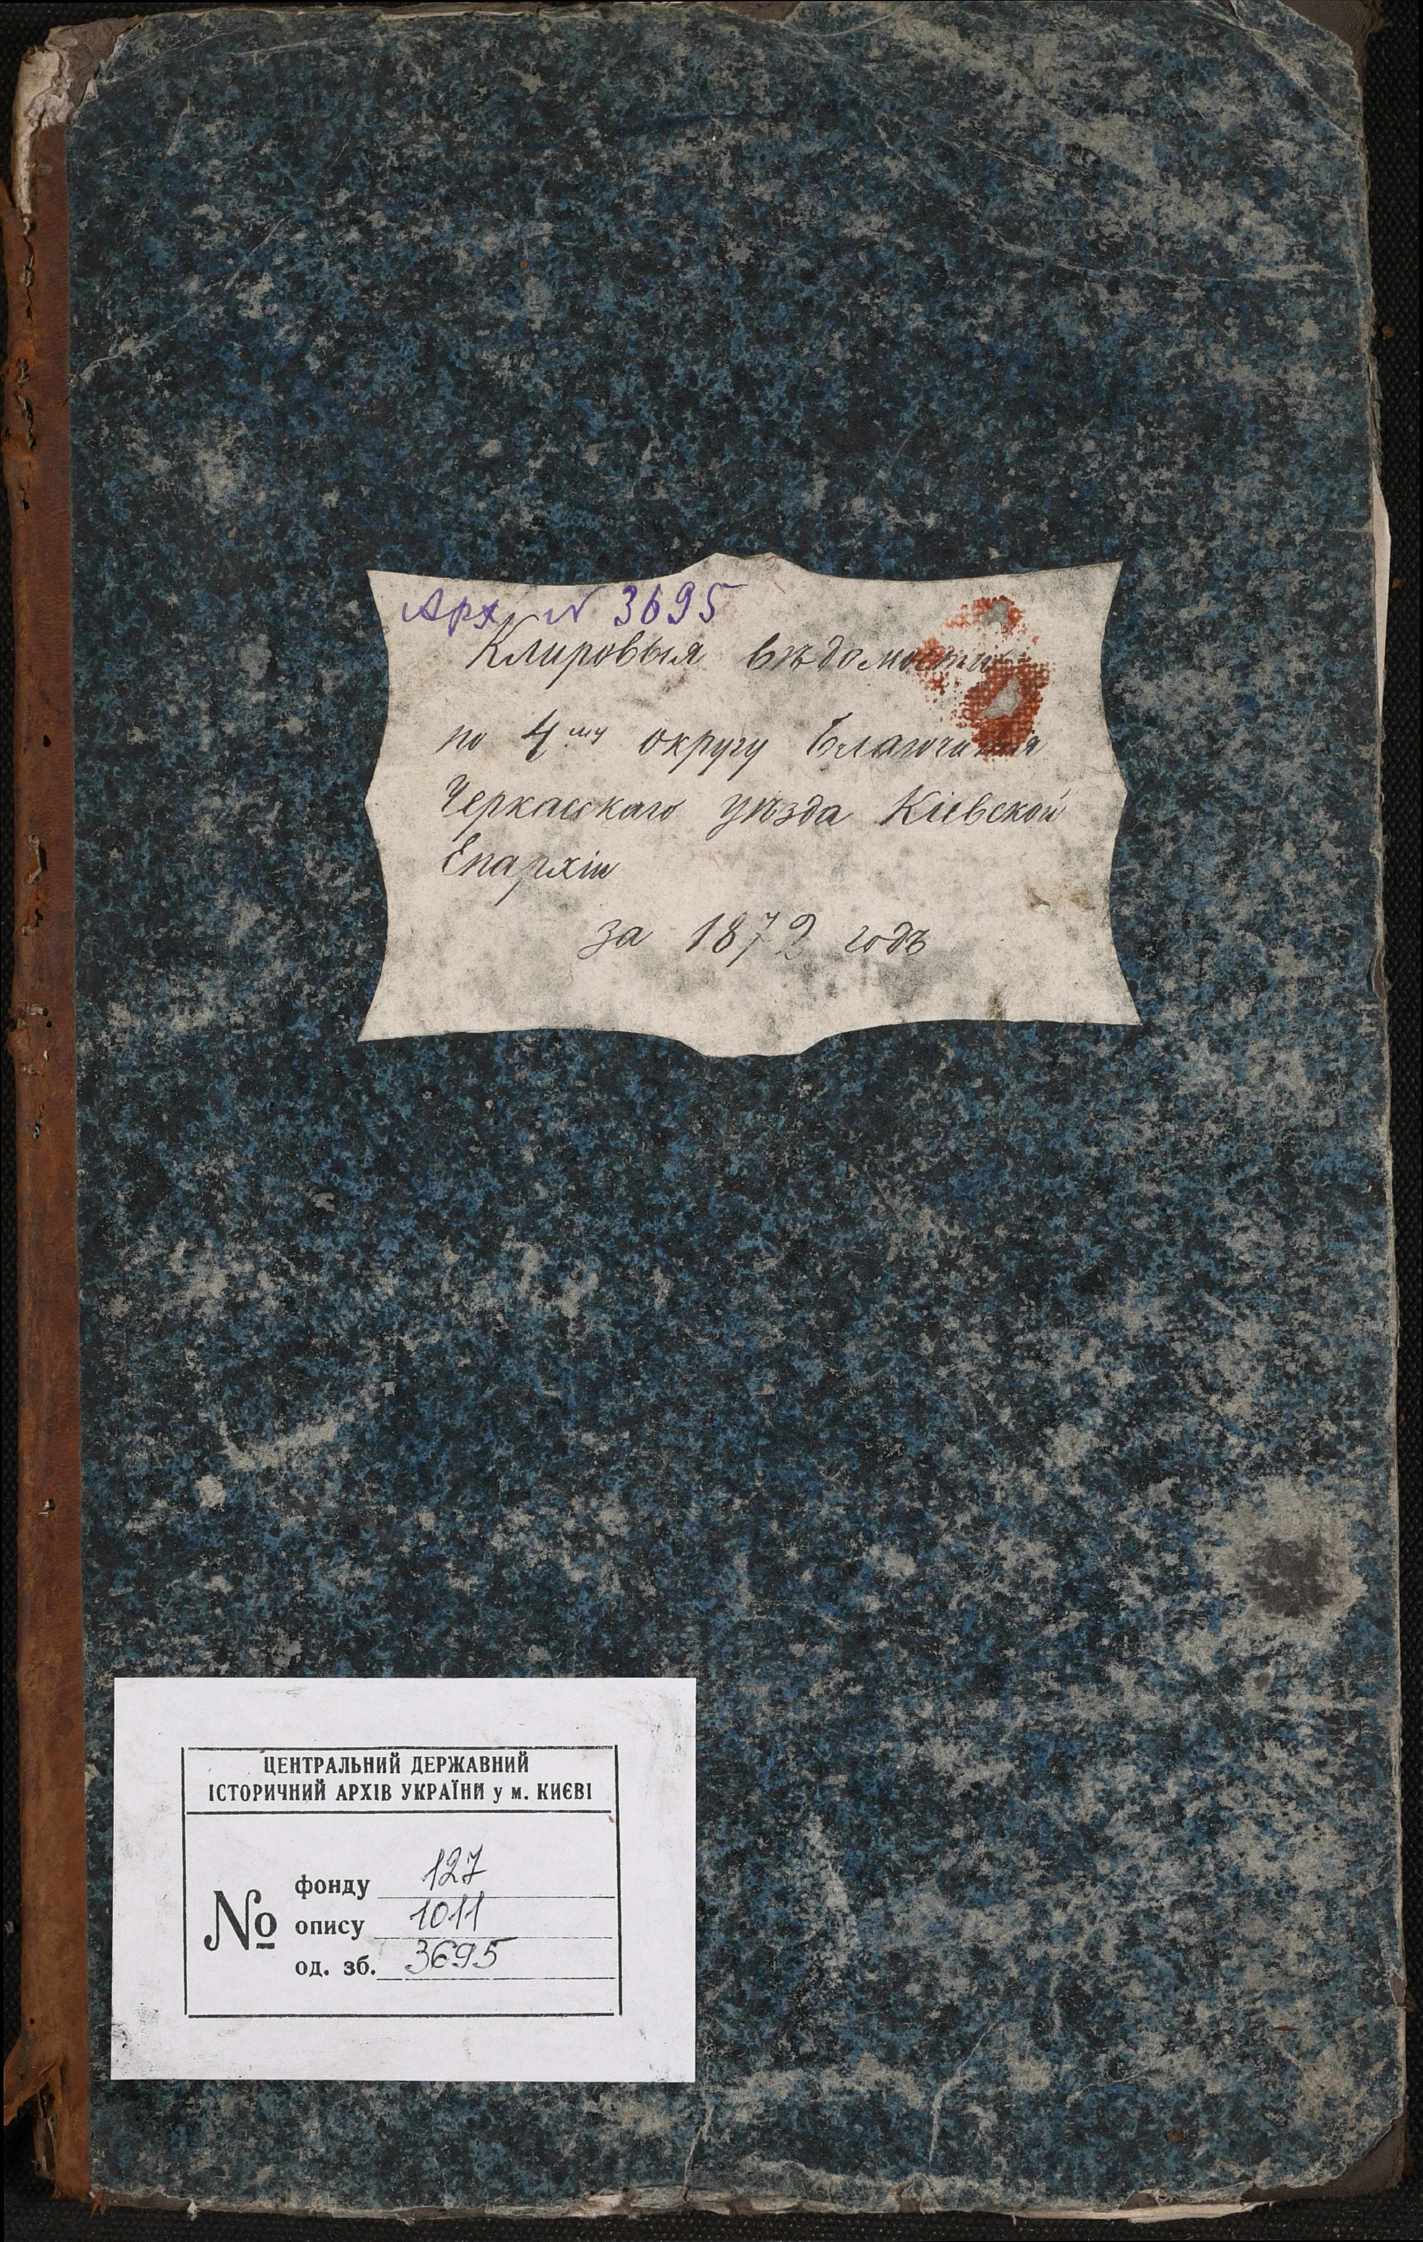 Арх № 3695
Клировыя вѣдомости
по 4му округу Благочинія
Черкасскаго уѣзда Кіевской
Епархіи
за 1872 годъ
ЦЕНТРАЛЬНИЙ ДЕРЖАВНИЙ
ІСТОРИЧНИЙ АРХІВ УКРАЇНИ у м. КИЄВІ
№
фонду 127
опису 1011
од. зб. 3695